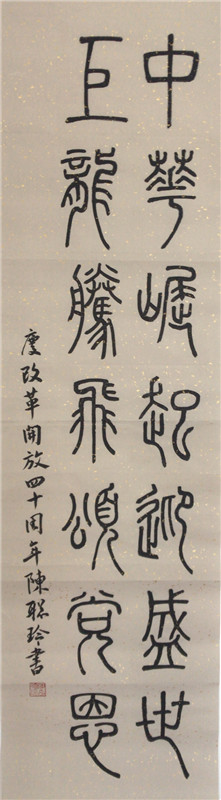 中華崛起迎盛世
巨龍騰飛頌党恩
慶改革開放四十周年陳聪玲書